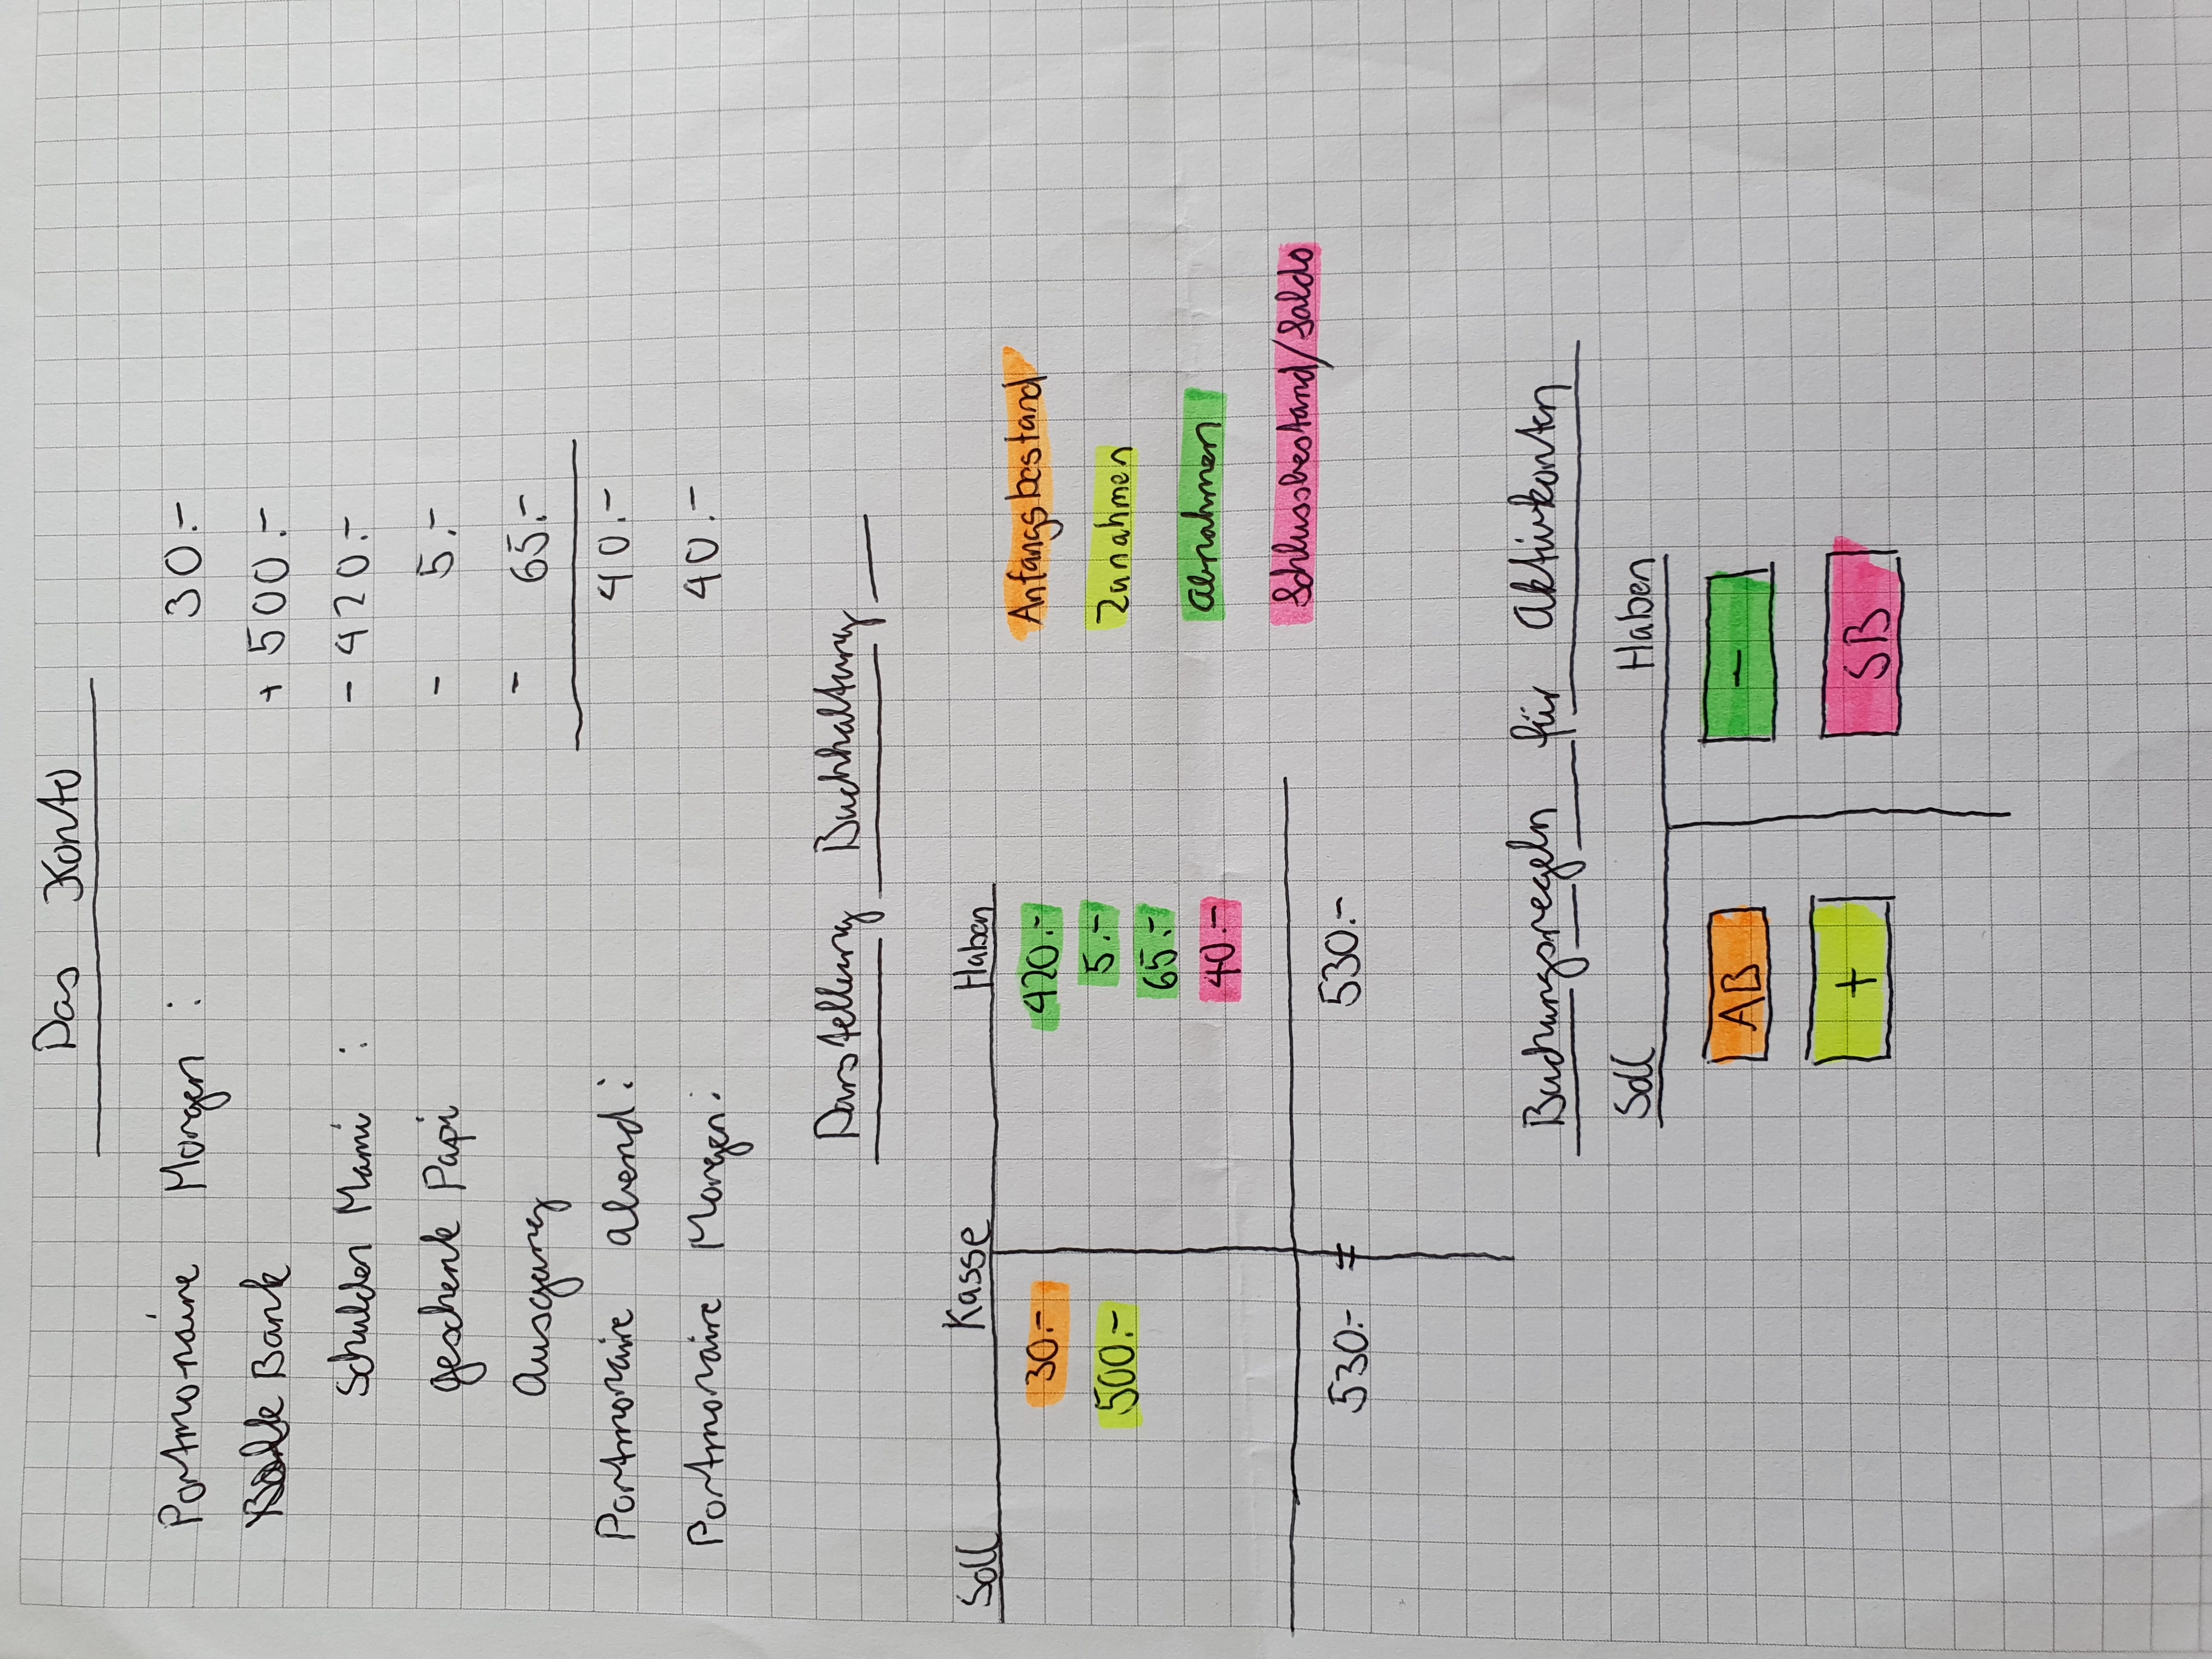 Das Konto
Portmonaire Morgen : 30.-
Bank + 500.-
Schulden Mami : - 420.-
geschenk Papi - 5.-
Ausgang - 65.-
Portmonaire abend: 40.-
Portmonaire Morgen: 40.-
Darstellung Buchhaltung
Soll Kasse Haben
30.- 420.- Anfangsbestand
500.- 5.- Zunahmen
65.-
40.- Abnahmen
Schlussbestand/Saldo
530.- = 530.-
Buchungsregeln für Aktivkonten
Soll Haben
AB -
+ SB